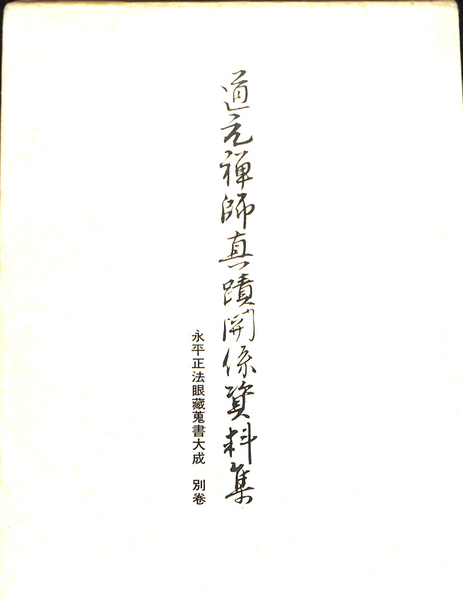 道元禅師真蹟関係資料集
永平正法眼藏蒐書大成 別巻